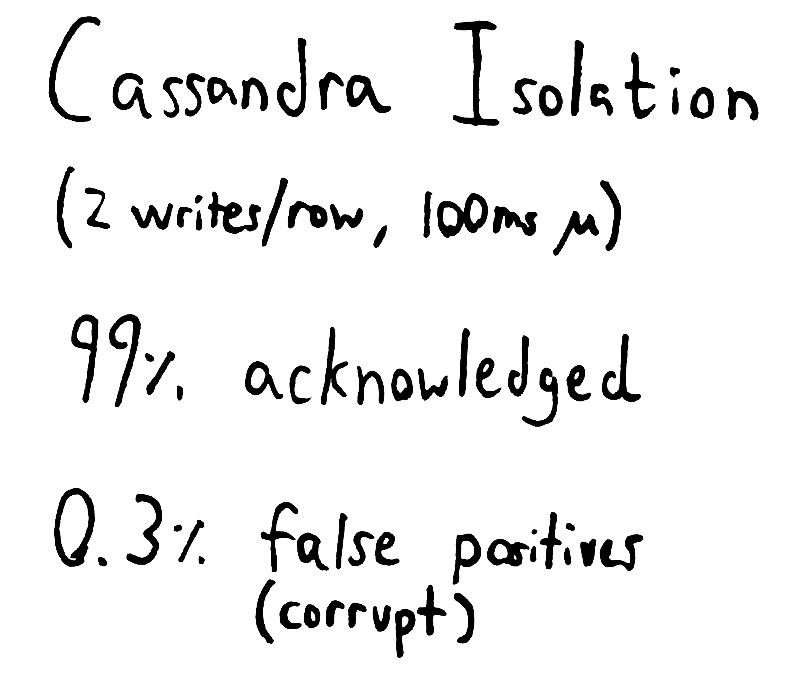 Cassandra Isolation
(2 writes/row, 100ms μ)
99% acknowledged
0.3% false positives
(corrupt)